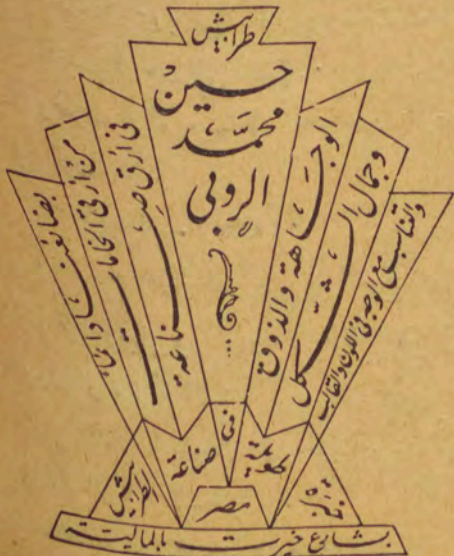 طرابيش
حسين
محمد
الروبي
الوجاهة والذوق
وجمال الشكل
والتناسب مع الوجه في اللون والقالب
في أرقى صناعة
من أرقى الخامات
بضائعنا
في
صناعة
الطرابيش
مصر
بشارع خيرت بالمالية